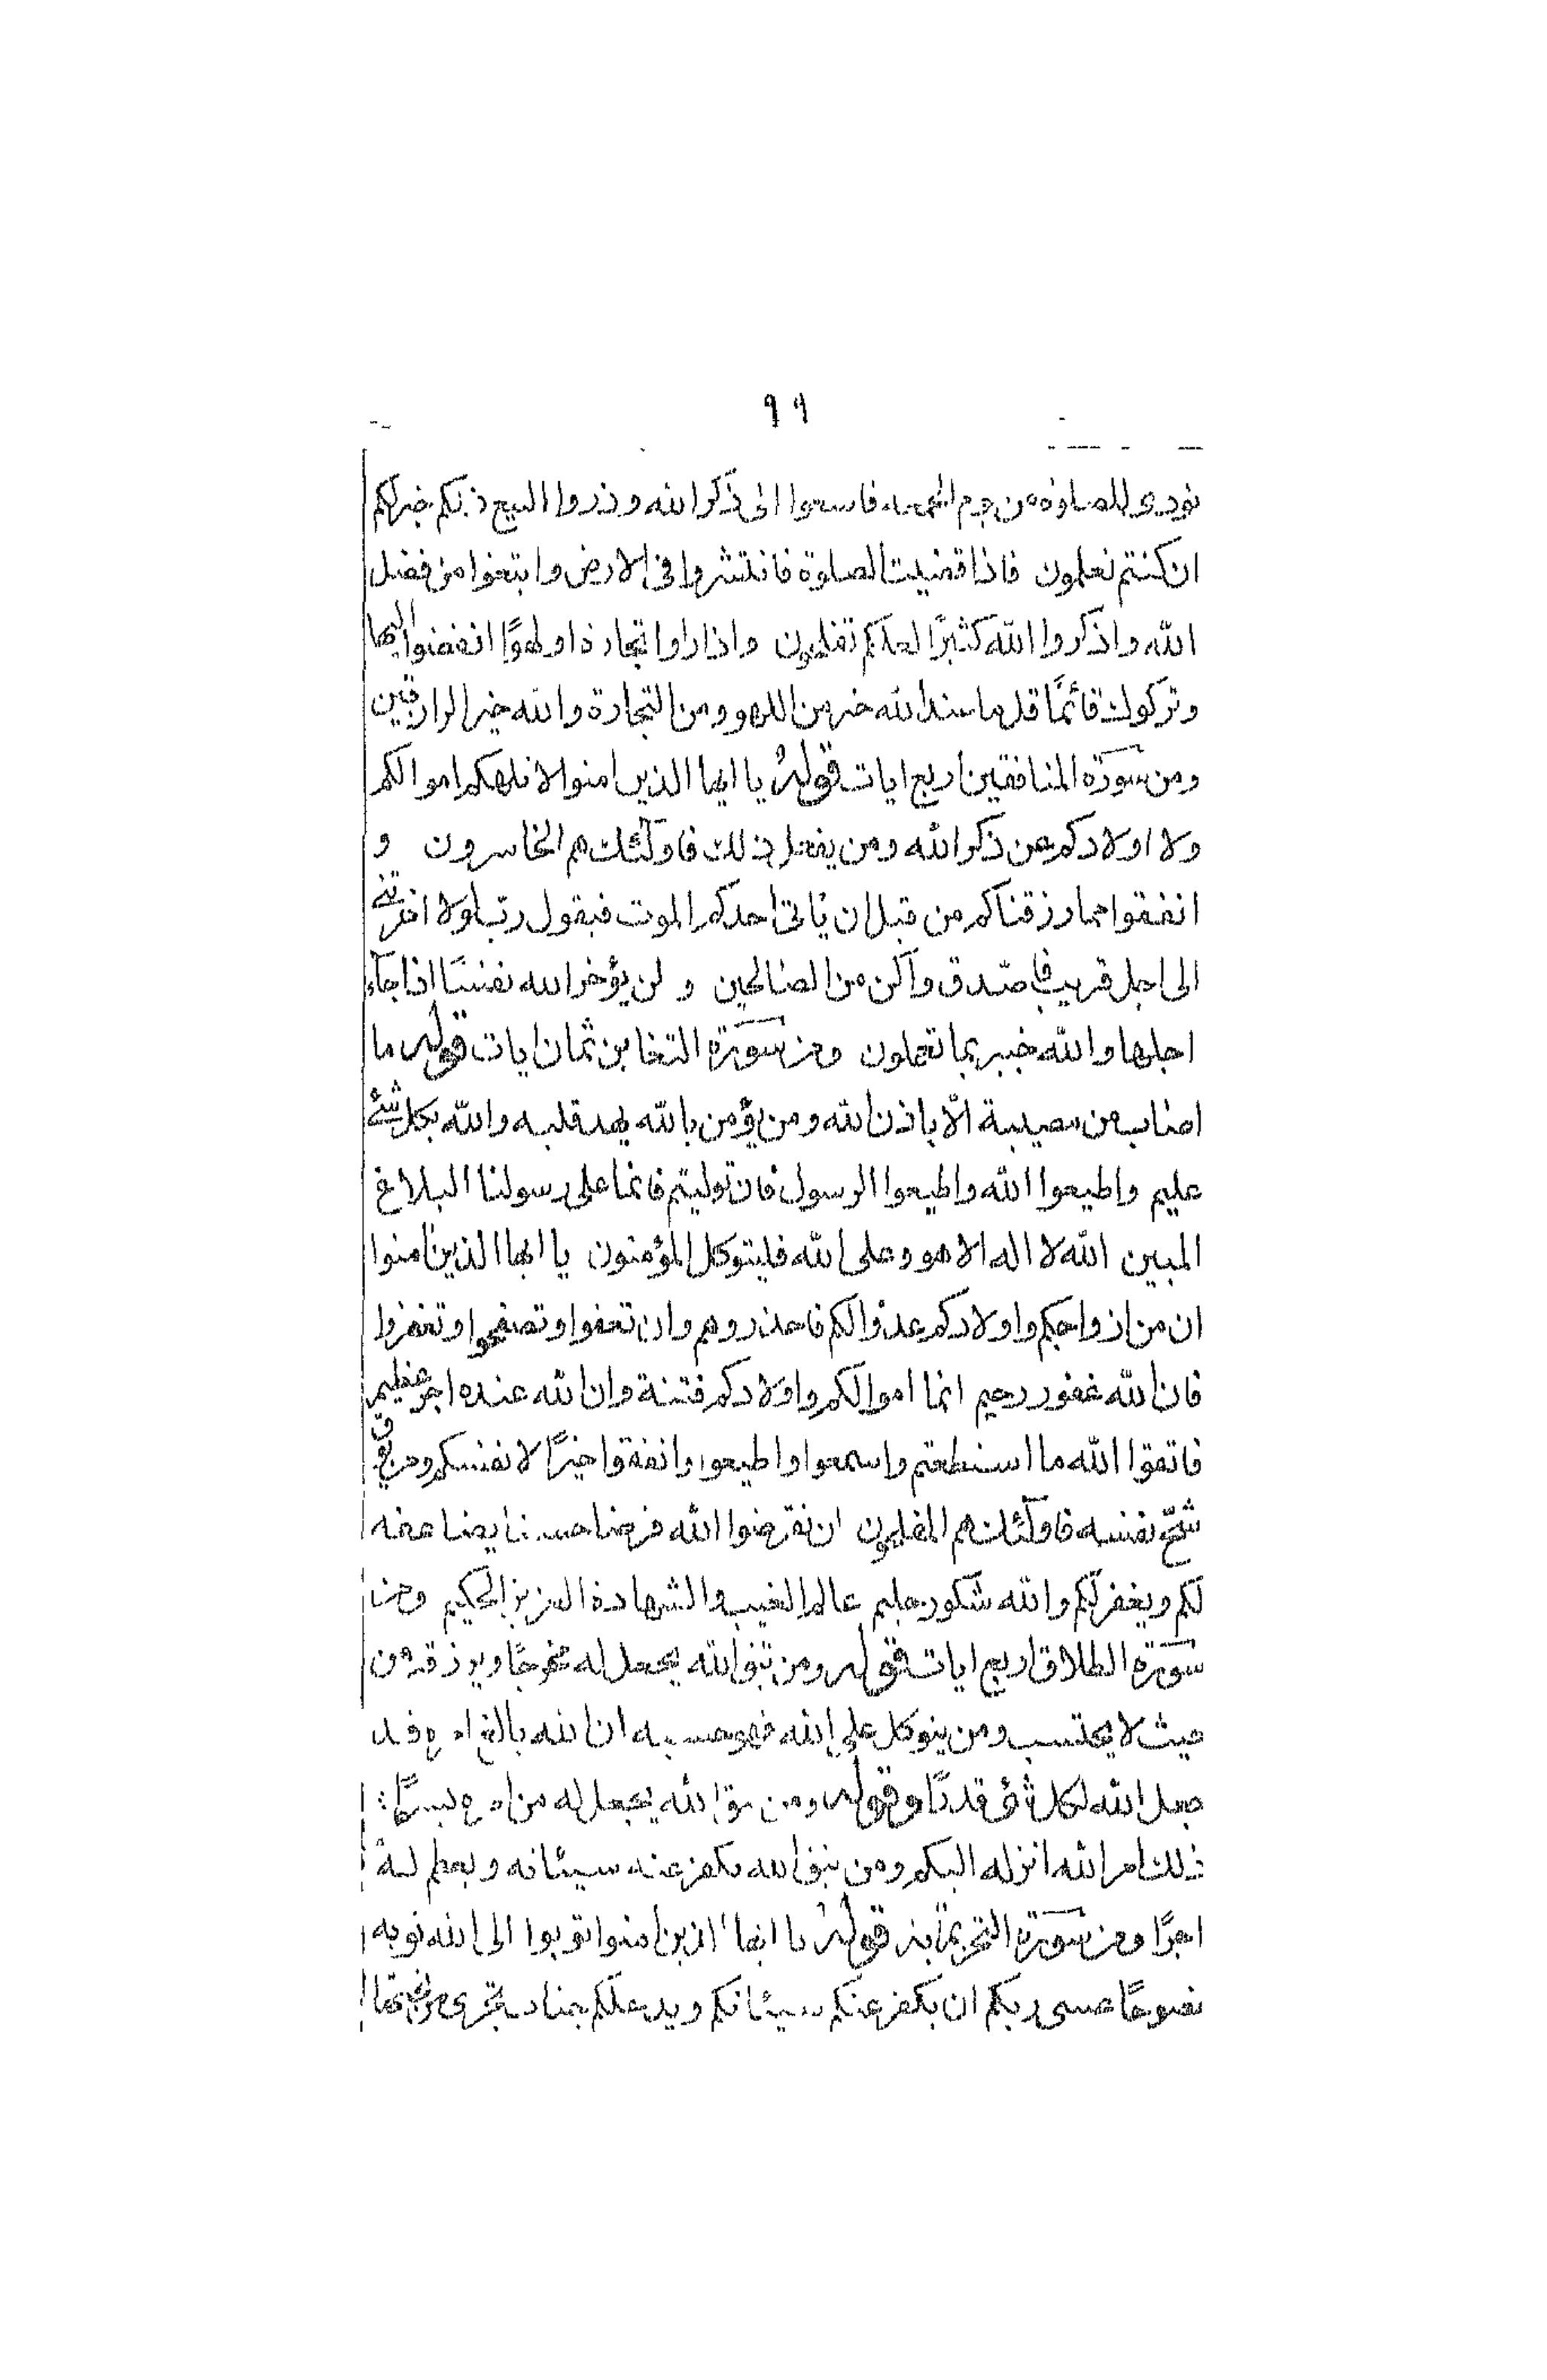 ٩٩
نودى للصلوة من يوم الجمعه فاسعوا الى ذكر الله وذروا البيع ذلكم خير لكم
ان كنتم تعلمون فاذا قضيت الصلوة فانتشروا فى الارض وابتغوا من فضل
الله واذكروا الله كثيرًا لعلكم تفلحون واذا راوا تجارة او لهوًا انفضوا اليها
وتركوك قائمًا قل ما عند الله خير من اللهو ومن التجارة والله خير الرازقين
ومن سورة المنافقين اربع ايات قوله يا ايها الذين امنوا لا تلهكم اموالكم
ولا اولادكم عن ذكر الله ومن يفعل ذلك فاولئك هم الخاسرون و
انفقوا مما رزقناكم من قبل ان ياتى احدكم الموت فيقول رب لولا اخرتنى
الى اجل قريب فاصّدق واكن من الصالحين و لن يؤخر الله نفسًا اذا جآء
اجلها والله خبير بما تعملون ومن سورة التغابن ثمان ايات قوله ما
اصاب من مصيبة الّا باذن الله ومن يؤمن بالله يهد قلبه والله بكل شئ
عليم واطيعوا الله واطيعوا الرسول فان توليتم فانما على رسولنا البلاغ
المبين الله لا اله الا هو وعلى الله فليتوكل المؤمنون يا ايها الذين امنوا
ان من ازواجكم واولادكم عدوا لكم فاحذروهم وان تعفوا وتصفحوا وتغفروا
فان الله غفور رحيم انما اموالكم واولادكم فتنة وان الله عنده اجر عظيم
فاتقوا الله ما استطعتم واسمعوا واطيعوا وانفقوا خيرًا لانفسكم ومن يوق
شحّ نفسه فاولئك هم المفلحون ان تقرضوا الله قرضا حسنا يضاعفه
لكم ويغفر لكم والله شكور حليم عالم الغيب والشهادة العزيز الحكيم ومن
سورة الطلاق اربع ايات قوله ومن يتق الله يجعل له مخرجًا ويرزقه من
حيث لا يحتسب ومن يتوكل على الله فهو حسبه ان الله بالغ امره قد
جعل الله لكل شئ قدرًا وقوله ومن يتق الله يجعل له من امره يسرًا
ذلك امر الله انزله اليكم ومن يتق الله يكفر عنه سيئاته ويعظم له
اجرًا ومن سورة التحريم اية قوله يا ايها الذين امنوا توبوا الى الله توبه
نصوحًا عسى ربكم ان يكفر عنكم سيئاتكم ويدخلكم جنات تجرى من تحتها